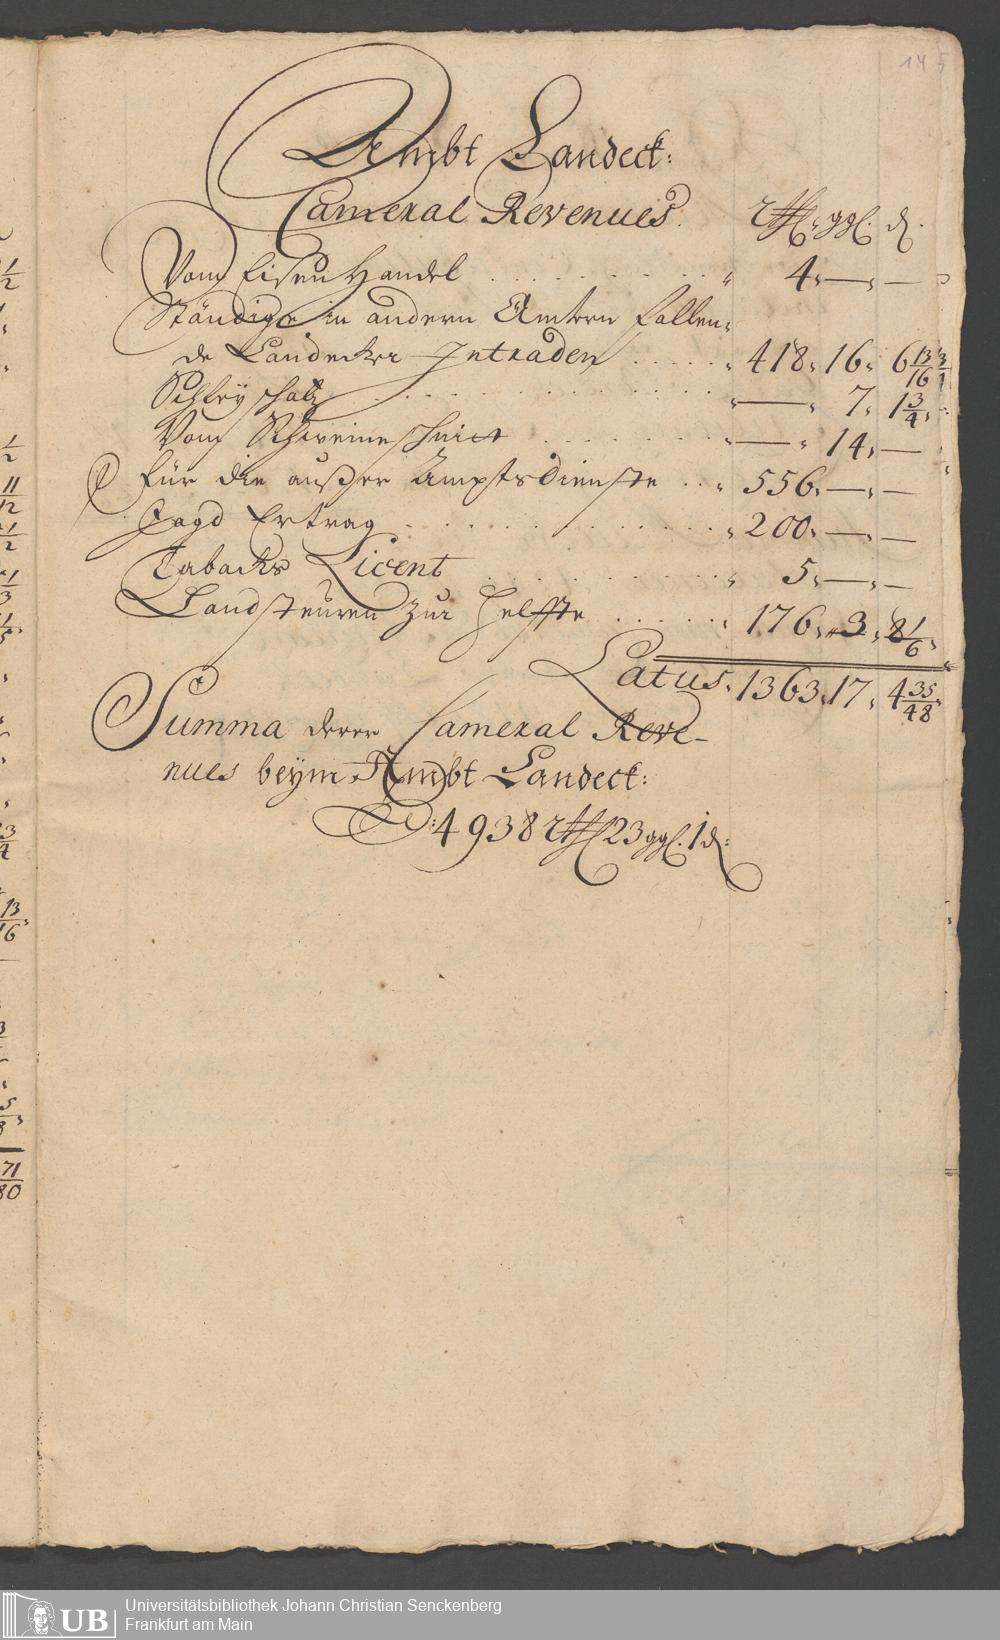 145
Ambt Landeck:
Cameral Revenues. rthl. ggl. d.
Vom Eisen Handel . . . . . . . . . " 4. — . —
Ständige in andern Ämtern fallen=
de Landecker Intraden . . . . . " 418. 16. 6 13/16
Schleyschatz . . . . . . . . . . . " — " 7. 1 3/4.
Vom Schweineschnitt . . . . . . . " — " 14. —
für die außer Ampts Dienste . . " 556. — . —
Jagd Ertrag . . . . . . . . . . . " 200. — . —
Tabacks Licent . . . . . . . . . " 5. — . —
Landsteuren zur Helffte . . . . . " 176. 3. 8 1/6.
Latus. 1363. 17. 4 35/48.
Summa derer Cameral Reve-
nues beym Ambt Landeck:
4938 rthl 23 ggl. 1 d:
1/2
1/2
11/12
1/2
1/3
1/5
3/4
13/16
71/80
UB Universitätsbibliothek Johann Christian Senckenberg
Frankfurt am Main